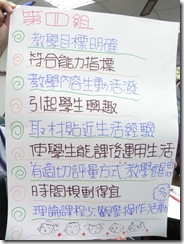 第四組
教學目標明確
符合能力指標
教學內容生動活潑
引起學生興趣
取材貼近生活經驗
使學生能課後運用生活
有適切評量方式教學
時間規劃得宜
多
理論課程少觀摩操作活動